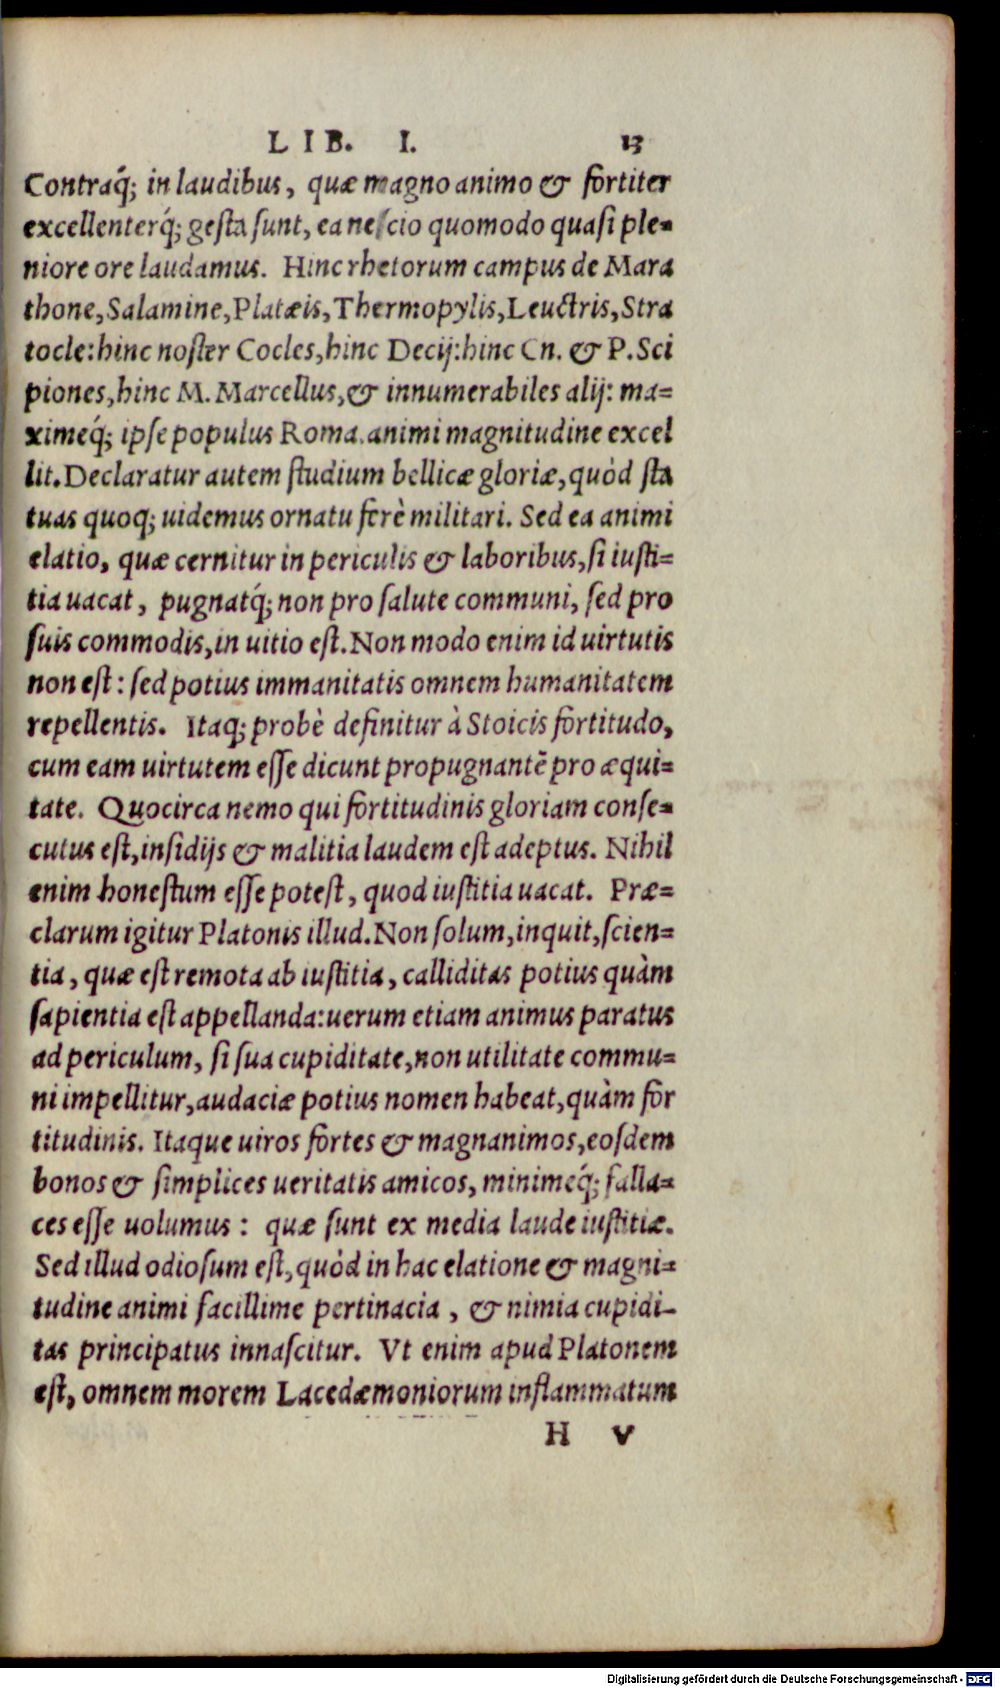 LIB. I. 13
Contraq́; in laudibus, quæ magno animo & fortiter
excellenterq́; gesta sunt, ea nescio quomodo quasi ple=
niore ore laudamus. Hinc rhetorum campus de Mara
thone, Salamine, Platæis, Thermopylis, Leuctris, Stra
tocle: hinc noster Cocles, hinc Decij: hinc Cn. & P. Sci
piones, hinc M. Marcellus, & innumerabiles alij: ma=
ximeq́; ipse populus Roma. animi magnitudine excel
lit. Declaratur autem studium bellicæ gloriæ, quòd sta
tuas quoq; uidemus ornatu ferè militari. Sed ea animi
elatio, quæ cernitur in periculis & laboribus, si iusti=
tia uacat, pugnatq́; non pro salute communi, sed pro
suis commodis, in uitio est. Non modo enim id uirtutis
non est: sed potius immanitatis omnem humanitatem
repellentis. Itaq; probè definitur à Stoicis fortitudo,
cum eam uirtutem esse dicunt propugnantē pro æqui=
tate. Quocirca nemo qui fortitudinis gloriam conse=
cutus est, insidijs & malitia laudem est adeptus. Nihil
enim honestum esse potest, quod iustitia uacat. Præ=
clarum igitur Platonis illud. Non solum, inquit, scien=
tia, quæ est remota ab iustitia, calliditas potius quàm
sapientia est appellanda: uerum etiam animus paratus
ad periculum, si sua cupiditate, non utilitate commu=
ni impellitur, audaciæ potius nomen habeat, quàm for
titudinis. Itaque uiros fortes & magnanimos, eosdem
bonos & simplices ueritatis amicos, minimeq́; falla=
ces esse uolumus: quæ sunt ex media laude iustitiæ.
Sed illud odiosum est, quòd in hac elatione & magni=
tudine animi facillime pertinacia, & nimia cupidi-
tas principatus innascitur. Vt enim apud Platonem
est, omnem morem Lacedæmoniorum inflammatum
H v
Digitalisierung gefördert durch die Deutsche Forschungsgemeinschaft - DFG